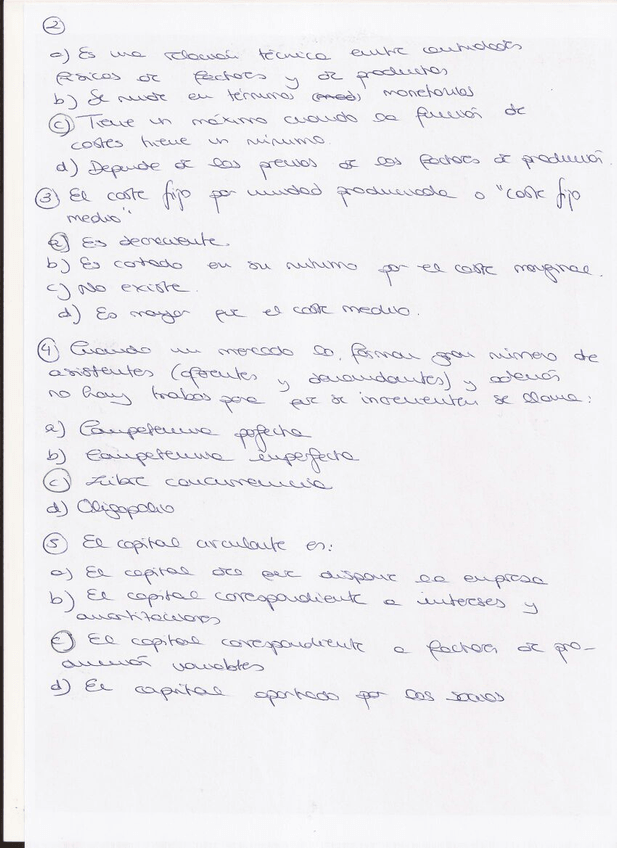 2
a) Es una relación técnica entre cantidades
físicas de factores y de productos
b) Se mide en términos monetarios
c) Tiene un máximo cuando la función de
costes tiene un mínimo.
d) Depende de los precios de los factores de producción.
3 El coste fijo por unidad producida o "coste fijo
medio"
a) Es decreciente.
b) Es cortado en su mínimo por el coste marginal.
c) No existe.
d) Es mayor que el coste medio.
4 Cuando un mercado lo forman gran número de
asistentes (oferentes y demandantes) y además
no hay trabas para que se incrementen se llama:
a) Competencia perfecta
b) Competencia imperfecta
c) Libre concurrencia
d) Oligopolio
5 El capital circulante es:
a) El capital del que dispone la empresa
b) El capital correspondiente a intereses y
amortizaciones
c) El capital correspondiente a factores de pro-
ducción variables
d) El capital aportado por los socios